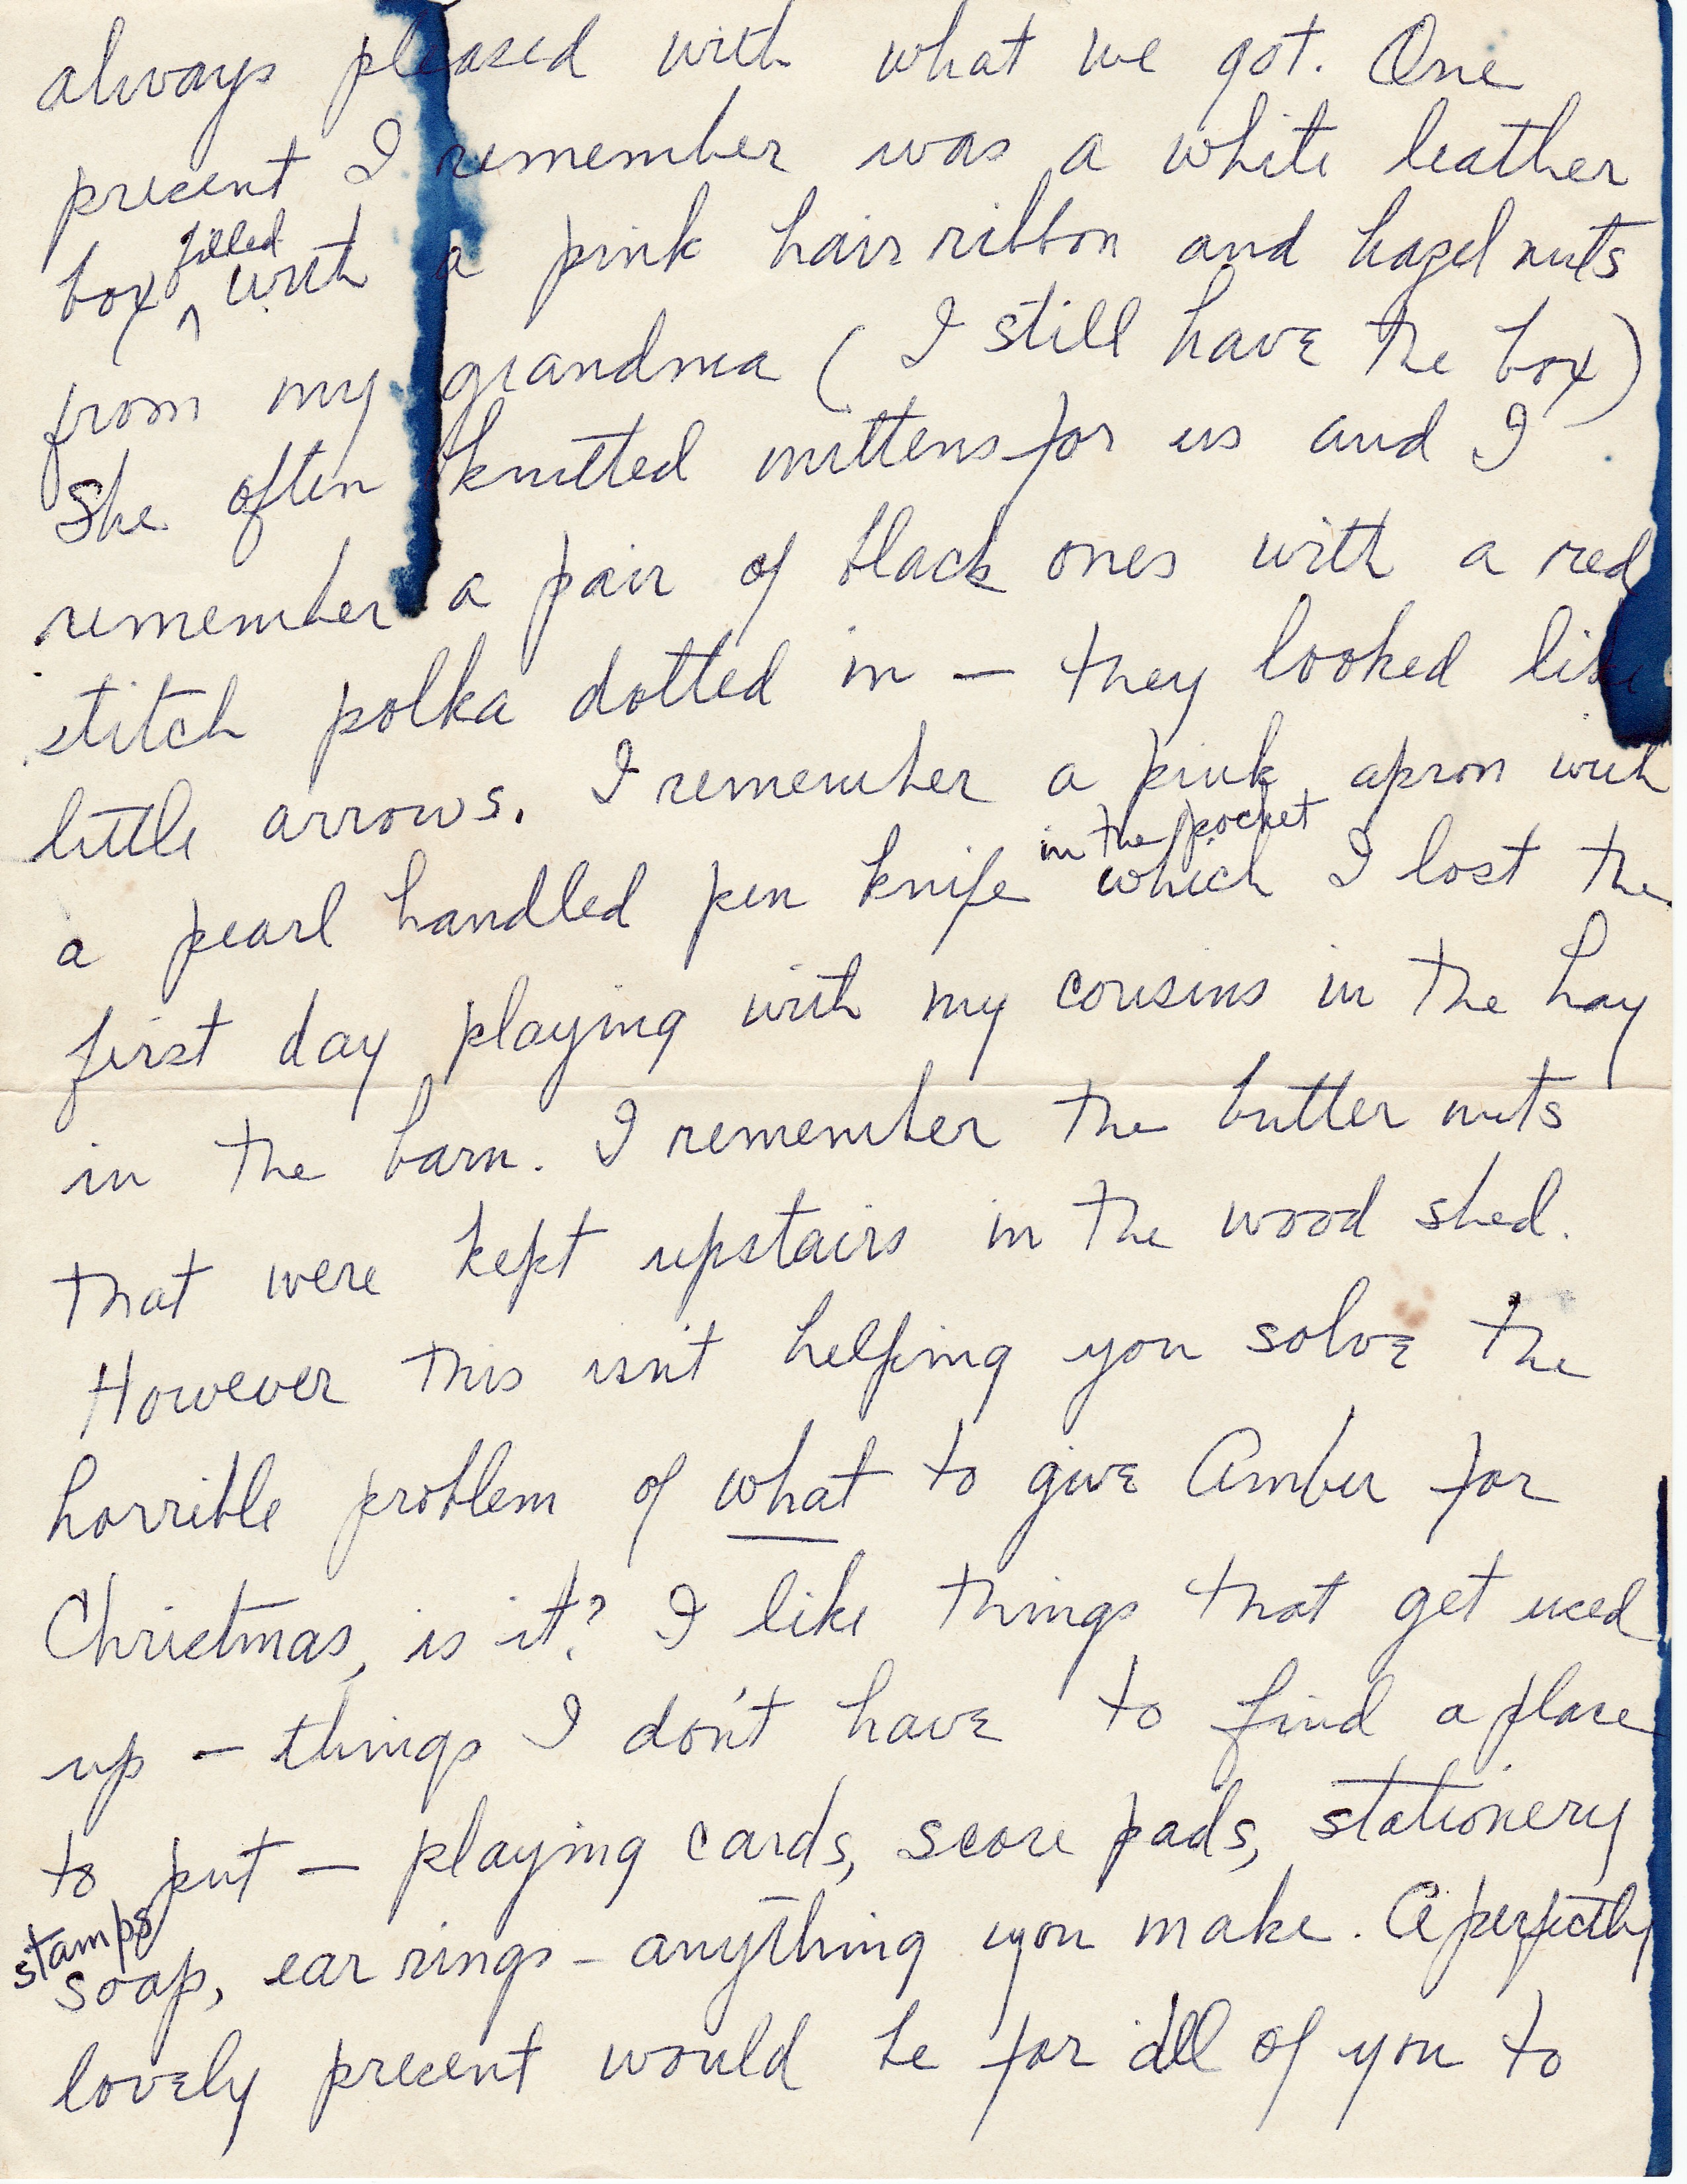 always pleased with what we got. One
present I remember was a white leather
filled
box ^ with a pink hair ribbon and hazel nuts
from my grandma ( I still have the box)
She often knitted mittens for us and I
remember a pair of black ones with a red
stitch polka dotted in — they looked like
little arrows. I remember a pink apron with
in the pocket
a pearl handled pen knife which I lost the
first day playing with my cousins in the hay
in the barn. I remember the butter nuts
that were kept upstairs in the wood shed.
However this isn't helping you solve the
horrible problem of what to give Amber for
Christmas, is it? I like things that get used
up — things I don't have to find a place
to put — playing cards, score pads, stationery
stamps
soap, ear rings - anything you make. A perfectly
lovely present would be for all of you to